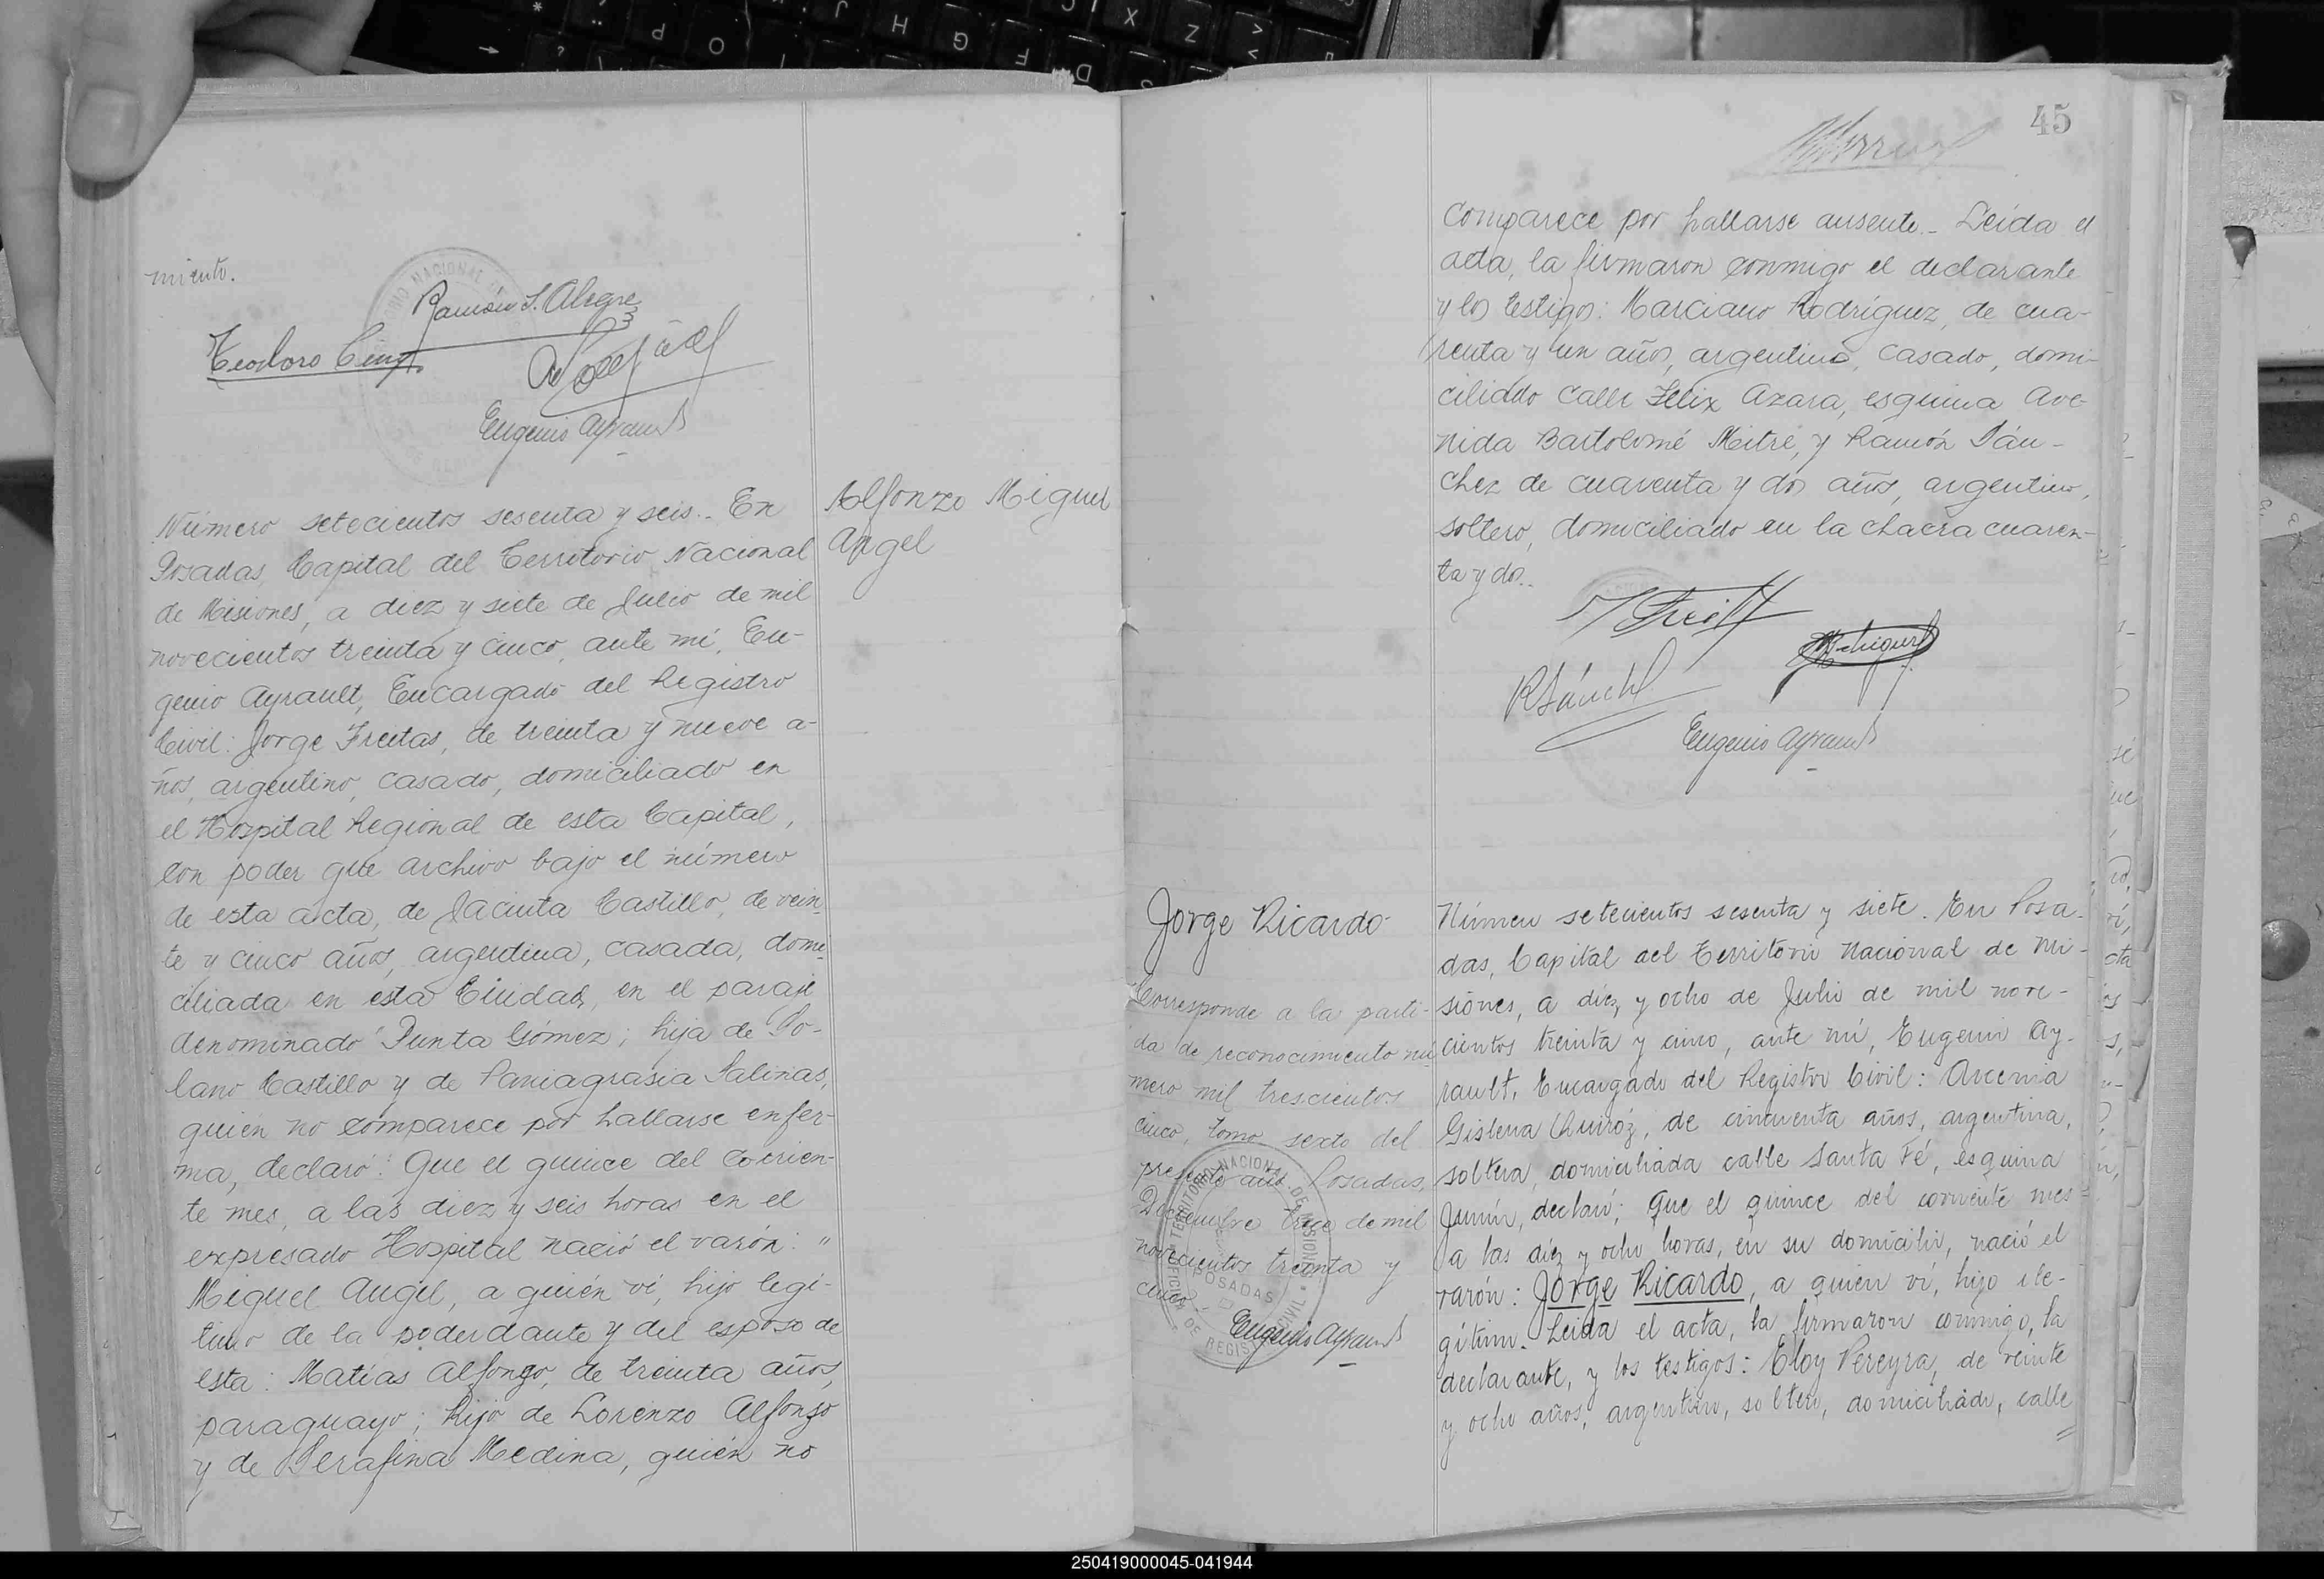 miento.
Ramón S. Alegre
Teodoro
Eugenio Ayrault
Número setecientos sesenta y seis.- En
Posadas, Capital del Territorio Nacional
de Misiones, a diez y siete de Julio de mil
novecientos treinta y cinco, ante mí, Eu-
genio Ayrault, Encargado del Registro
Civil: Jorge Freitas, de treinta y nueve a-
ños, argentino, casado, domiciliado en
el Hospital Regional de esta Capital,
con poder que archivo bajo el número
de esta acta, de Jacinta Castillo, de vein-
te y cinco años, argentina, casada, domi-
ciliada en esta Ciudad, en el paraje
denominado Punta Gómez; hija de Po-
lano Castillo y de Paniagrasia Salinas,
quién no comparece por hallarse enfer-
ma, declaró: Que el quince del corrien-
te mes, a las diez y seis horas en el
expresado Hospital nació el varón: "
Miguel Angel, a quién ví, hijo legí-
timo de la poderdante y del esposo de
esta: Matías Alfonzo, de treinta años,
paraguayo; hijo de Lorenzo Alfonzo
y de Serafina Medina, quién no
Alfonzo Miguel
Angel
45
comparece por hallarse ausente.- Leída el
acta, la firmaron conmigo el declarante
y los testigos: Marciano Rodríguez, de cua-
renta y un años, argentino, casado, domi-
ciliado calle Félix Azara, esquina Ave-
nida Bartolomé Mitre, y Ramón Sán-
chez de cuarenta y dos años, argentino,
soltero, domiciliado en la chacra cuaren-
ta y dos.-
R Sánchez
Eugenio Ayrault
Jorge Ricardo
Corresponde a la parti-
da de reconocimiento nú-
mero mil trescientos
cinco, tomo sexto del
presente año. Posadas,
Diciembre trece de mil
novecientos treinta y
cinco.-
TERRITORIO NACIONAL DE MISIONES
POSADAS
OFICINA DE REGISTRO CIVIL
Eugenio Ayrault
Número setecientos sesenta y siete. En Posa-
das, Capital del Territorio Nacional de Mi-
siones, a diez y ocho de Julio de mil nove-
cientos treinta y cinco, ante mí, Eugenio Ay-
rault, Encargado del Registro Civil: Arcenia
Gislena Quiróz, de cincuenta años, argentina,
soltera, domiciliada calle Santa Fé, esquina
Junín, declaró; que el quince del corriente mes
a las diez y ocho horas, en su domicilio, nació el
varón: Jorge Ricardo, a quien ví, hijo ile-
gítimo. Leida el acta, la firmaron conmigo, la
declarante, y los testigos: Eloy Pereyra, de veinte
y ocho años, argentino, soltero, domiciliado, calle
250419000045-041944